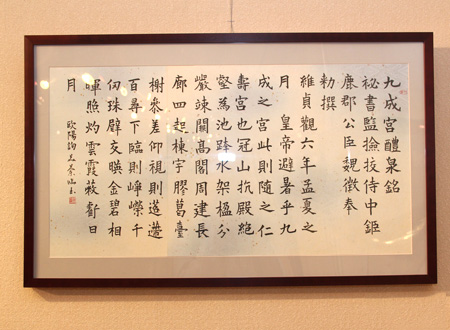 九成宮醴泉銘
祕書監撿挍侍中鉅
鹿郡公臣魏徵奉
勅撰
維貞觀六年孟夏之
月 皇帝避暑乎九
成之宮此則隨之仁
壽宮也冠山抗殿絕
壑為池跨水架楹分
巖竦闕高閣周建長
廊四起棟宇膠葛臺
榭參差仰視則迢遰
百尋下臨則崢嶸千
仞珠璧交暎金碧相
暉照灼雲霞蔽虧日
月
歐陽詢